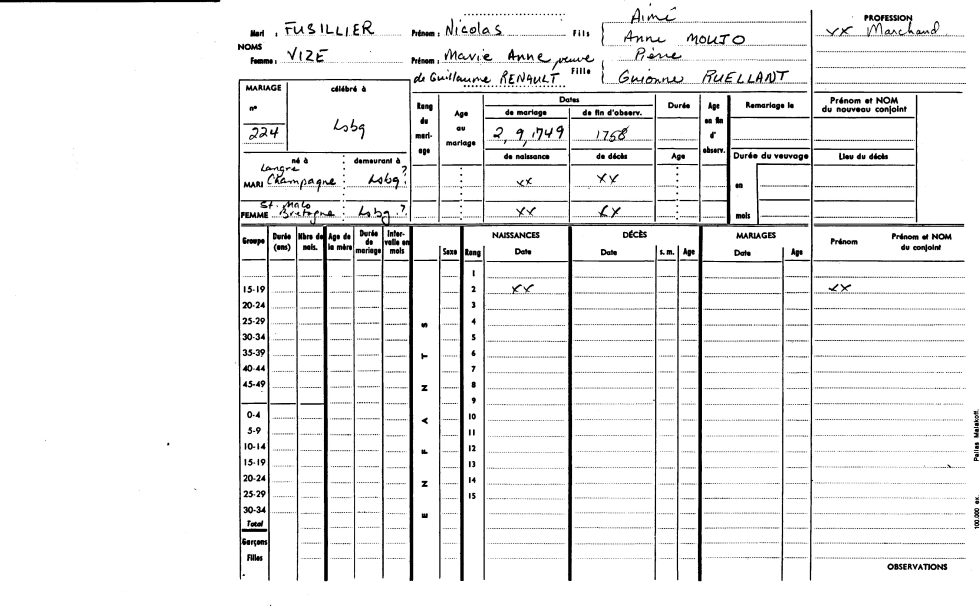 Aimé
PROFESSION
Mari : FUSILLIER Prénom : Nicolas Fils Anne MOUJO xx Marchand
NOMS
Femme : VIZE Prénom : Marie Anne veuve Pierre
de Guillaume RENAULT Fille Guionne RUELLANT
MARIAGE célébré à
n° 224 Lsbg
Rang du mari-age
Age au mariage
Dates
de mariage de fin d'observ.
2,9,1749 1758
Durée
Age en fin d'observ.
Remariage le
Prénom et NOM du nouveau conjoint
né à demeurant à
de naissance de décès Age Durée du veuvage Lieu du décès
Langre
MARI Champagne Lsbg? xx xx en
St. Malo
FEMME Bretagne Lsbg.? xx xx mois
Groupe Durée (ans) Nbre de nais. Age de la mère Durée de mariage Inter-valle en mois Sexe Rang
NAISSANCES DÉCÈS MARIAGES
Date Date s. m. Age Date Age Prénom Prénom et NOM du conjoint
1
15-19 2 xx xx
20-24 3
25-29 4
30-34 5
35-39 6
40-44 7
45-49 8
9
0-4 10
5-9 11
10-14 12
15-19 13
20-24 14
25-29 15
30-34
Total
Garçons
Filles
ENFANTS
OBSERVATIONS
100,000 ex. Pallas Malakoff.